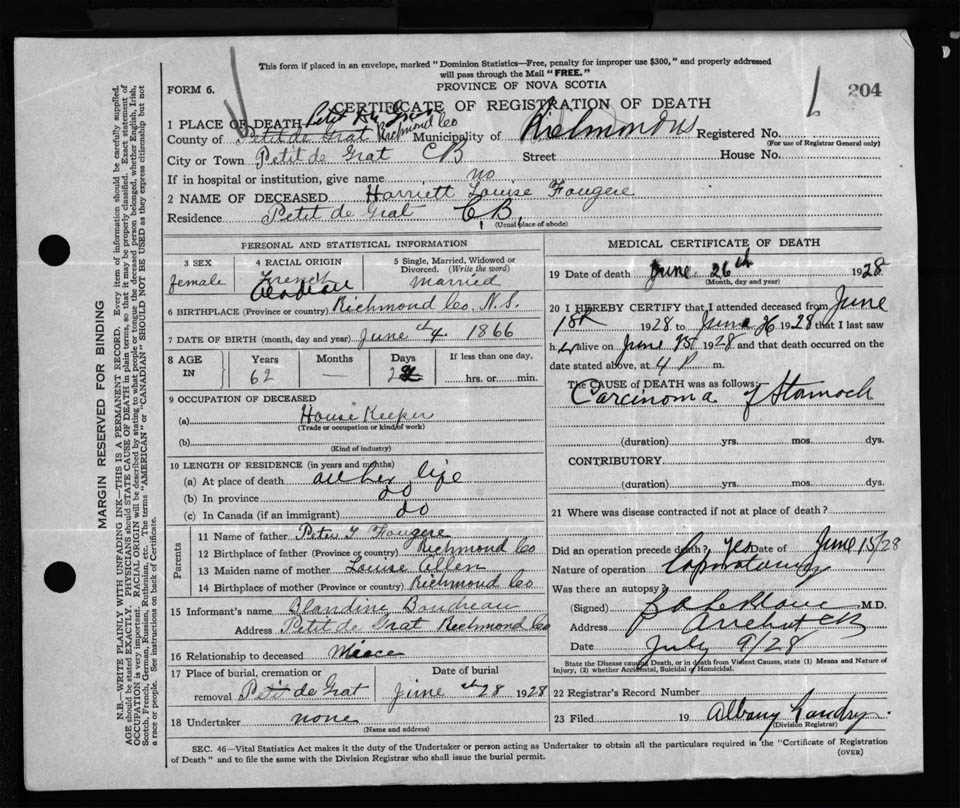 This form if placed in an envelope, marked "Dominion Statistics—Free, penalty for improper use $300," and properly addressed
will pass through the Mail "FREE."
FORM 6.
PROVINCE OF NOVA SCOTIA
204
CERTIFICATE OF REGISTRATION OF DEATH
1 PLACE OF DEATH Petit De Grat
County of Petit de Grat Richmond Co Municipality of Richmond Registered No.
(For use of Registrar General only)
City or Town Petit de Grat CB Street House No.
If in hospital or institution, give name no
2 NAME OF DECEASED Harriett Louise Fougere
Residence Petit de Grat C B,
(Usual place of abode)
PERSONAL AND STATISTICAL INFORMATION
3 SEX
female
4 RACIAL ORIGIN
French
Acadian
5 Single, Married, Widowed or
Divorced. (Write the word)
Married
6 BIRTHPLACE (Province or country) Richmond Co. N.S.
7 DATE OF BIRTH (month, day and year) June th 4 1866
8 AGE
IN
Years
62
Months
—
Days
22
If less than one day,
hrs. or min.
9 OCCUPATION OF DECEASED
(a) House Keeper
(Trade or occupation or kind of work)
(b)
(Kind of industry)
10 LENGTH OF RESIDENCE (in years and months)
(a) At place of death all her life
(b) In province do
(c) In Canada (if an immigrant) do
Parents
11 Name of father Peter T Fougere
12 Birthplace of father (Province or country) Richmond Co
13 Maiden name of mother Louise
14 Birthplace of mother (Province or country) Richmond Co
15 Informant's name Blandine Boudreau
Address Petit de Grat Richmond Co
16 Relationship to deceased Miece
17 Place of burial, cremation or
removal Petit de Grat
Date of burial
June th 28 1928
18 Undertaker none
(Name and address)
MEDICAL CERTIFICATE OF DEATH
19 Date of death June 26th 1928
(Month, day and year)
20 I HEREBY CERTIFY that I attended deceased from June
1st 1928 to June 26 1928 that I last saw
her alive on June 1928 and that death occurred on the
date stated above, at 4 P m.
The CAUSE of DEATH was as follows:
Carcinoma of Stomach
(duration) yrs. mos. dys.
CONTRIBUTORY.
(duration) yrs. mos. dys.
21 Where was disease contracted if not at place of death?
Did an operation precede death? yes Date of June 15/28
Nature of operation Laparotomy
Was there an autopsy?
(Signed) M.D.
Address Arichat CB
Date July 9/28
State the Disease causing Death, or in death from Violent Causes, state (1) Means and Nature of
Injury, (2) whether Accidental, Suicidal or Homicidal.
22 Registrar's Record Number
23 Filed 19 Albany Landry.
(Division Registrar)
SEC. 46—Vital Statistics Act makes it the duty of the Undertaker or person acting as Undertaker to obtain all the particulars required in the "Certificate of Registration
of Death" and to file the same with the Division Registrar who shall issue the burial permit.
(OVER)
MARGIN RESERVED FOR BINDING
N.B.—WRITE PLAINLY WITH UNFADING INK—THIS IS A PERMANENT RECORD. Every item of information should be carefully supplied.
AGE should be stated EXACTLY. PHYSICIANS should STATE CAUSE OF DEATH in plain terms, so that it may be properly classified. Exact statement of
OCCUPATION is very important. RACIAL ORIGIN will be described by stating to what people or tongue the deceased person belonged, whether English, Irish,
Scotch, French, German, Russian, Ruthenian, etc. The terms "AMERICAN" or "CANADIAN" SHOULD NOT BE USED as they express citizenship but not
a race or people. See instructions on back of Certificate.